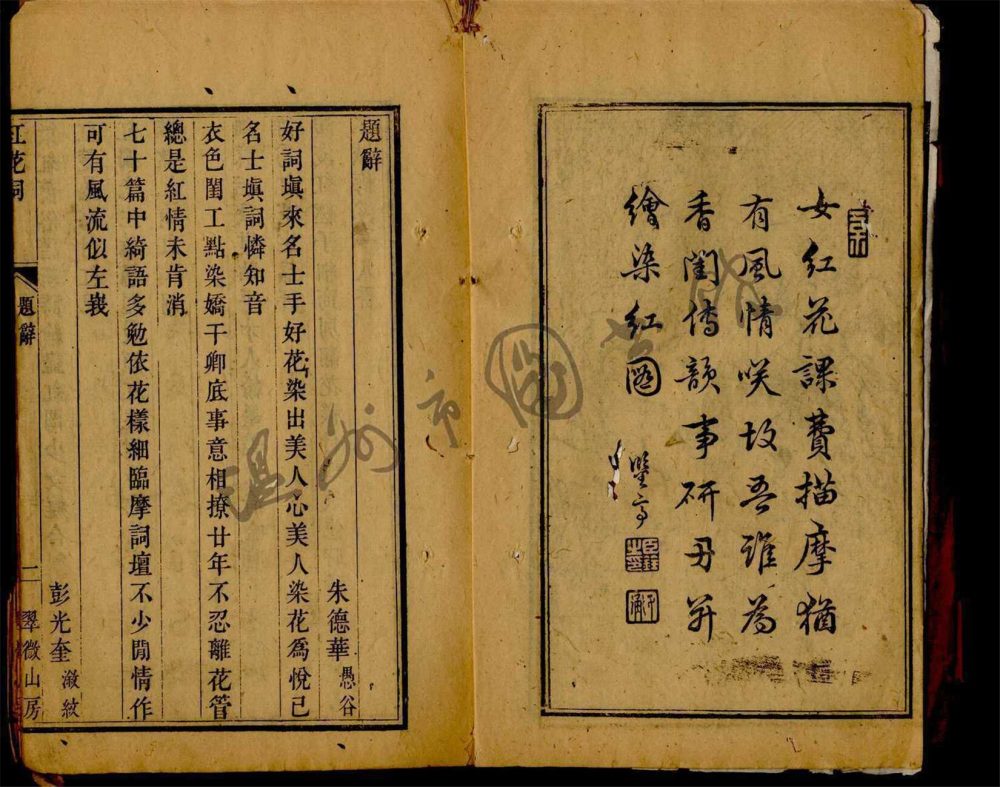 女紅花課費描摩猶
有風情咲故吾誰為
香閨傳韻事研丹笄
繪染紅圖
題辭
朱德華 愚谷
好詞塡來名士手好花染出美人心美人染花爲悅已
名士塡詞憐知音
衣色閨工點染嬌干卿底事意相撩廿年不忍離花管
總是紅情未肯消
七十篇中綺語多勉依花樣細臨摩詞壇不少閒情作
可有風流似左峩
彭光奎 瀓紋
紅花詞
題辭
二
翠微山房
溫州市圖